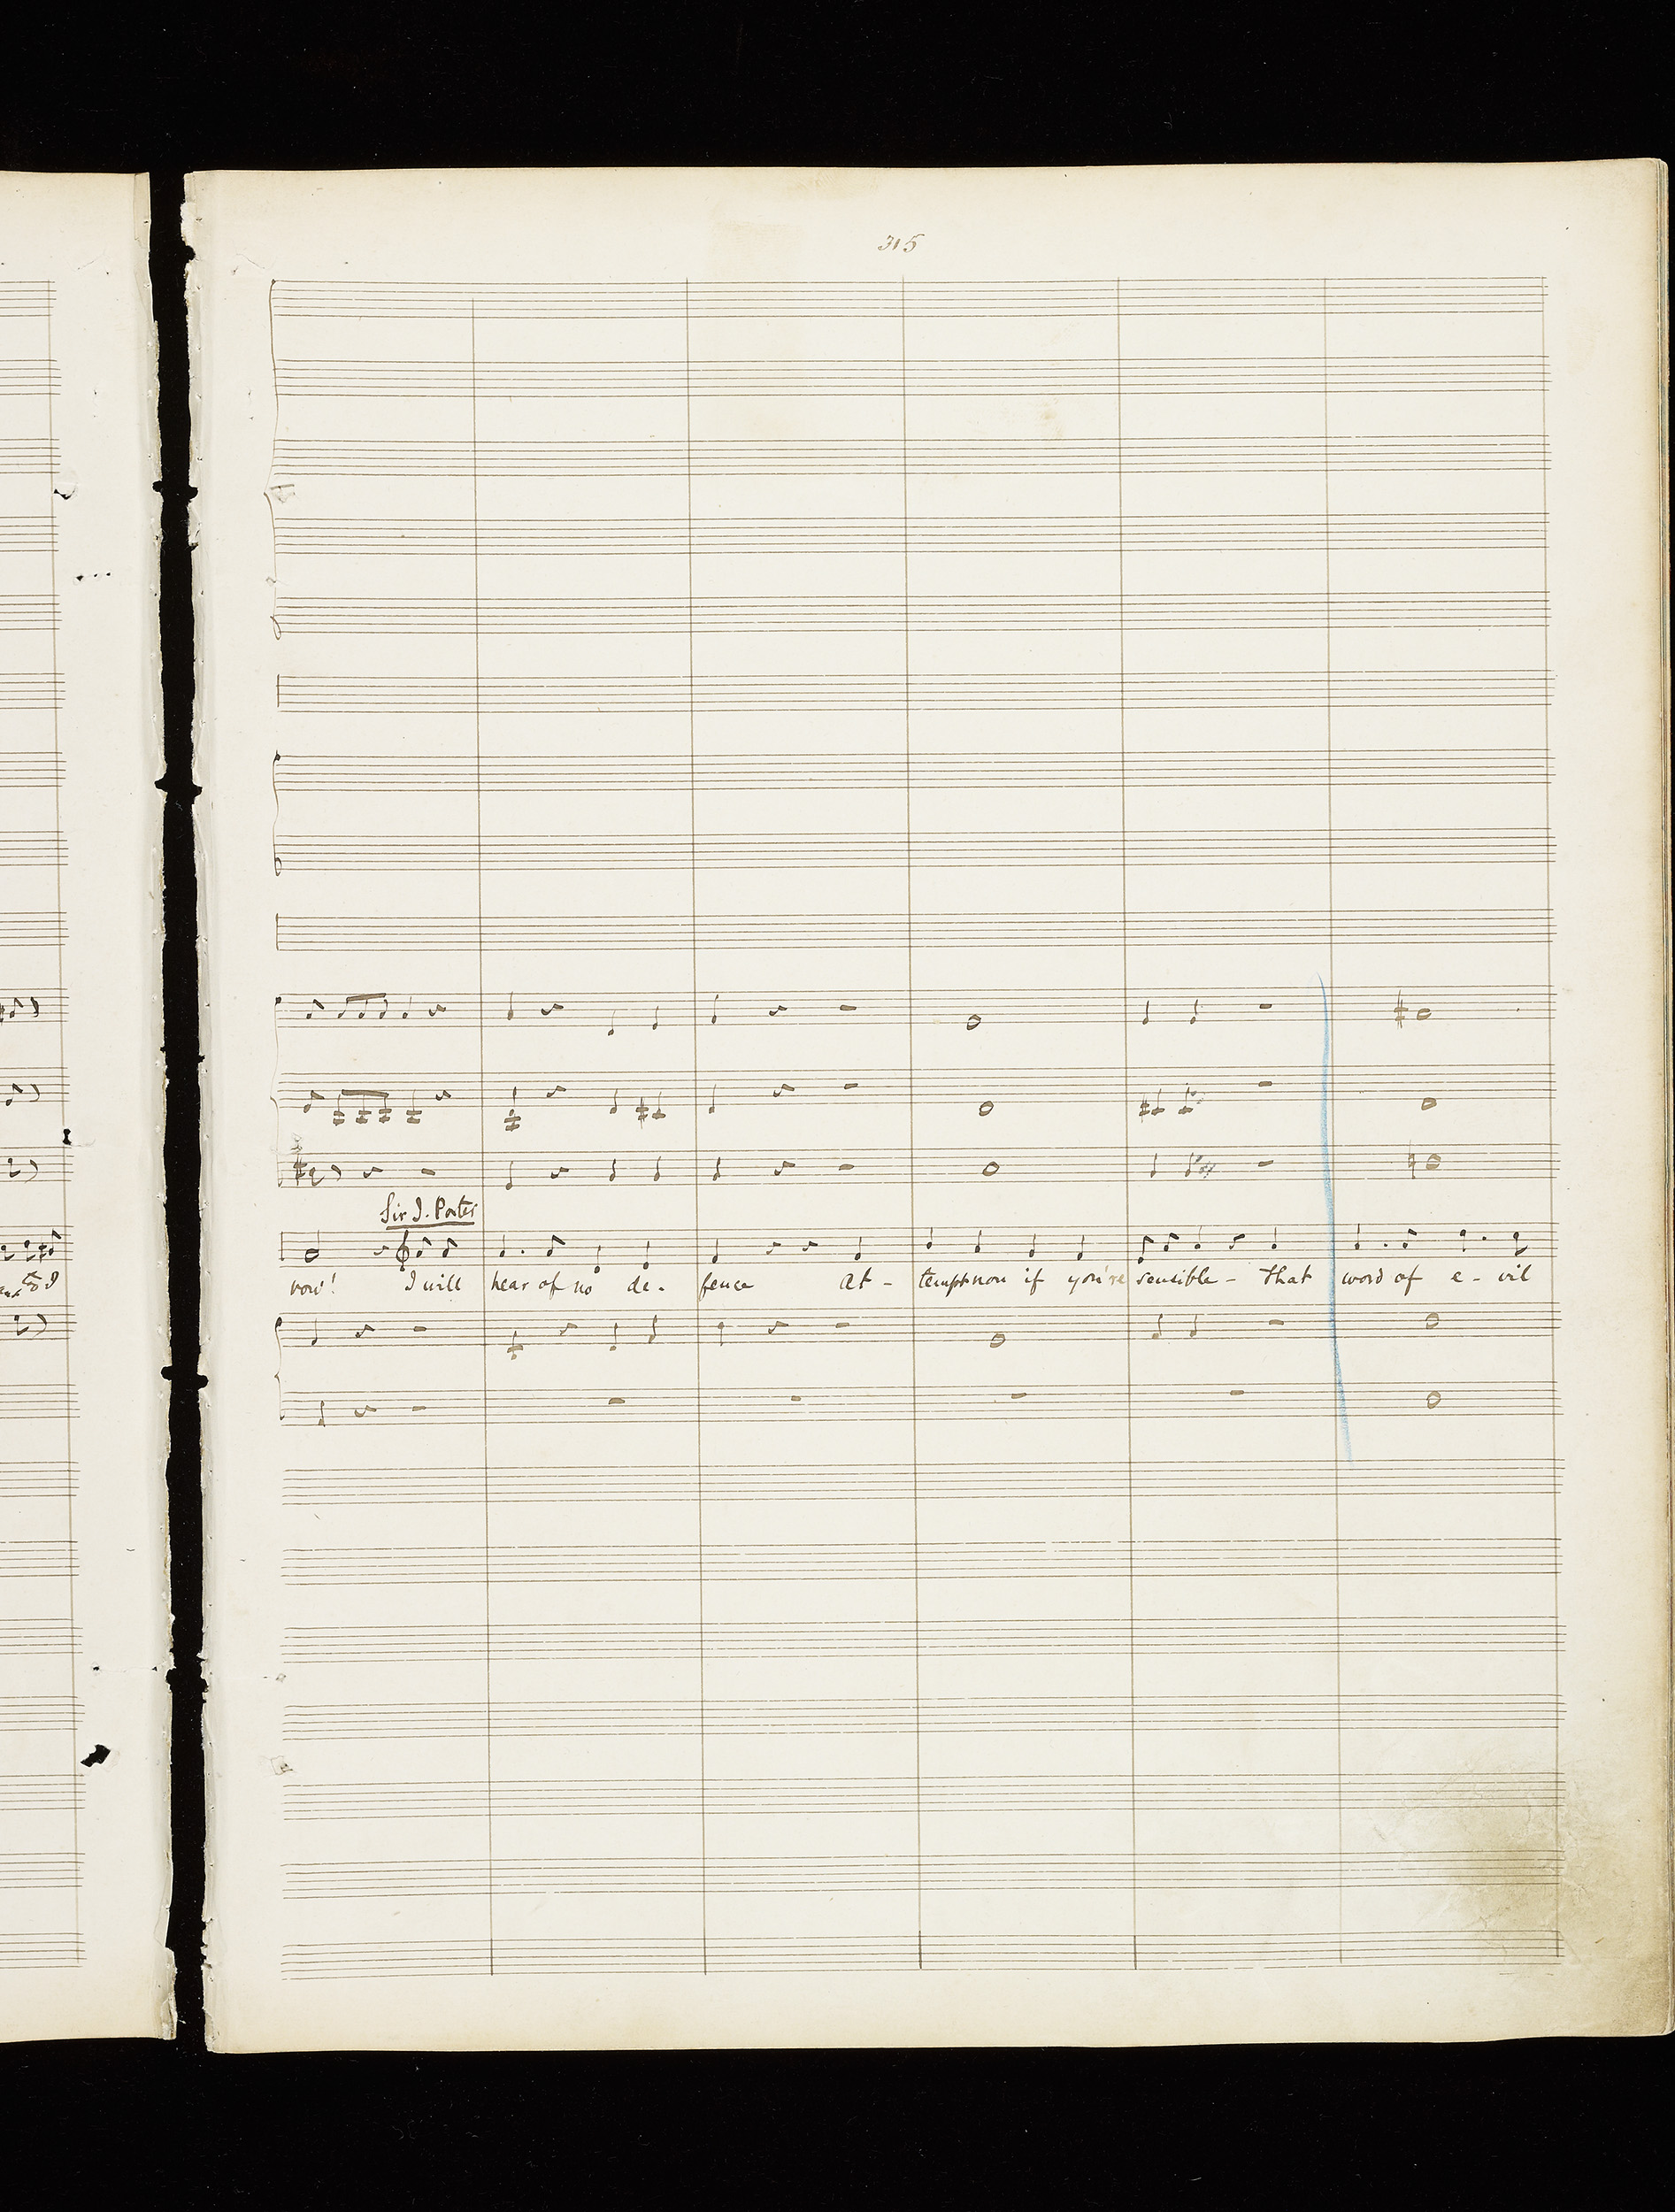 315
Sir J. Porter
to I
now! I will hear of no de- fence At- tempt non if you're sensible - That word of e - vil